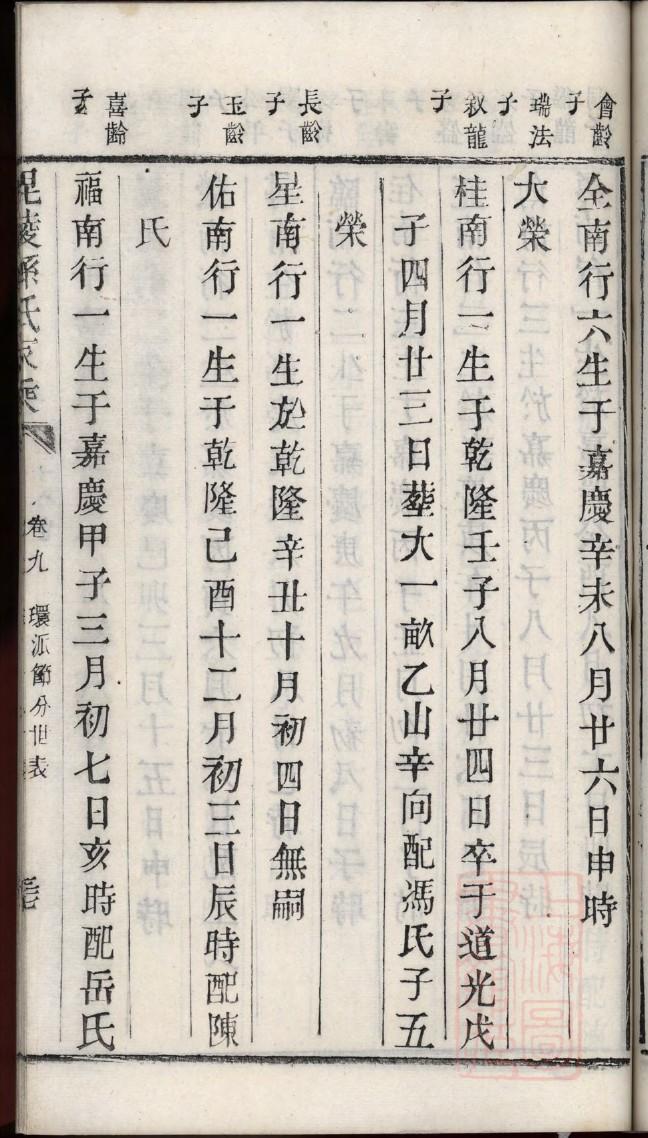 會齡
子
全南行六生于嘉慶辛未八月廿六日申時
瑞法
子
大榮
叙龍
子
桂南行一生于乾隆壬子八月廿四日卒于道光戊
子四月廿三日葬大一畝乙山辛向配馮氏子五
榮
長齡
子
星南行一生於乾隆辛丑十月初四日無嗣
玉齡
子
佑南行一生于乾隆己酉十二月初三日辰時配陳
氏
喜齡
子
福南行一生于嘉慶甲子三月初七日亥時配岳氏
毘陵孫氏家乘
卷九
環派節分世表